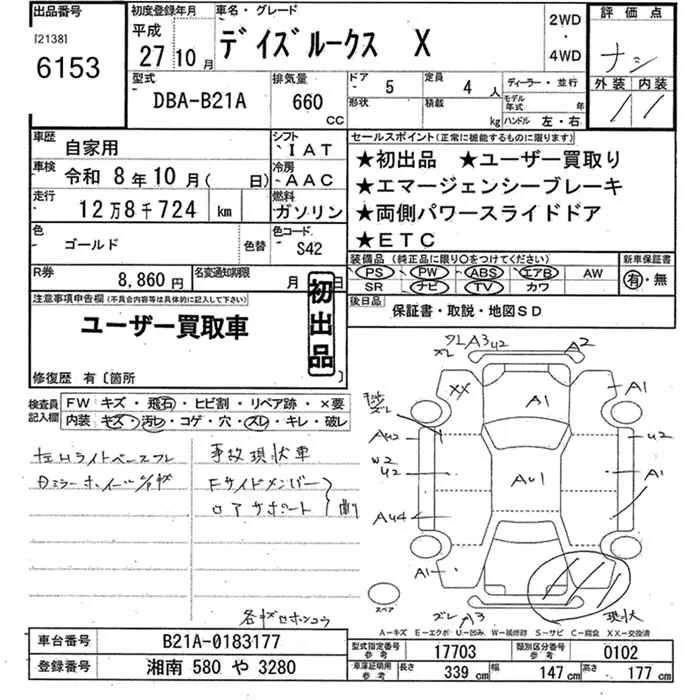 出品番号
[2138]
6153
初度登録年月
平成
27年10月
車名・グレード
デイズルークス X
2WD
・
4WD
評価点
ナシ
外装 内装
型式
DBA-B21A
排気量
660
CC
ドア
5
定員
4人
形状
積載
kg
ディーラー・並行
モデル年式 年
ハンドル 左・右
車歴
自家用
シフト
IAT
車検
令和 8年10月( 日)
冷房
AAC
走行
12万8千724 km
燃料
ガソリン
色
ゴールド
色替
色コード
S42
R券
8,860円
名変通知期限
月 日
セールスポイント(正常に機能するものに限ります)
★初出品 ★ユーザー買取り
★エマージェンシーブレーキ
★両側パワースライドドア
★ETC
装備品(純正品に限り○をつけてください)
PS PW ABS エアB AW
SR ナビ TV カワ
新車保証書
有・無
後日品
保証書・取説・地図SD
注意事項申告欄(不具合内容等は具体的に記入して下さい)
ユーザー買取車
初出品
修復歴 有〔箇所 〕
検査員記入欄
FW キズ・飛石・ヒビ割・リペア跡・×要
内装 キズ・汚レ・コゲ・穴・スレ・キレ・破レ
事故現状車
Fサイドメンバー
ロアサポート
A3
U2
A2
ズレ
XX
A1
A1
AU2
U2
W2
U2
AU1
A1
AU4
A1
ズレ
A3
現状
スペア
A-キズ E-エクボ U-凹み W-補修跡 S-サビ C-腐食 XX-交換済
車台番号
B21A-0183177
登録番号
湘南 580 や 3280
型式指定番号
参考
17703
類別区分番号
参考
0102
車庫証明用
参考
長さ
339 cm
幅
147 cm
高さ
177 cm